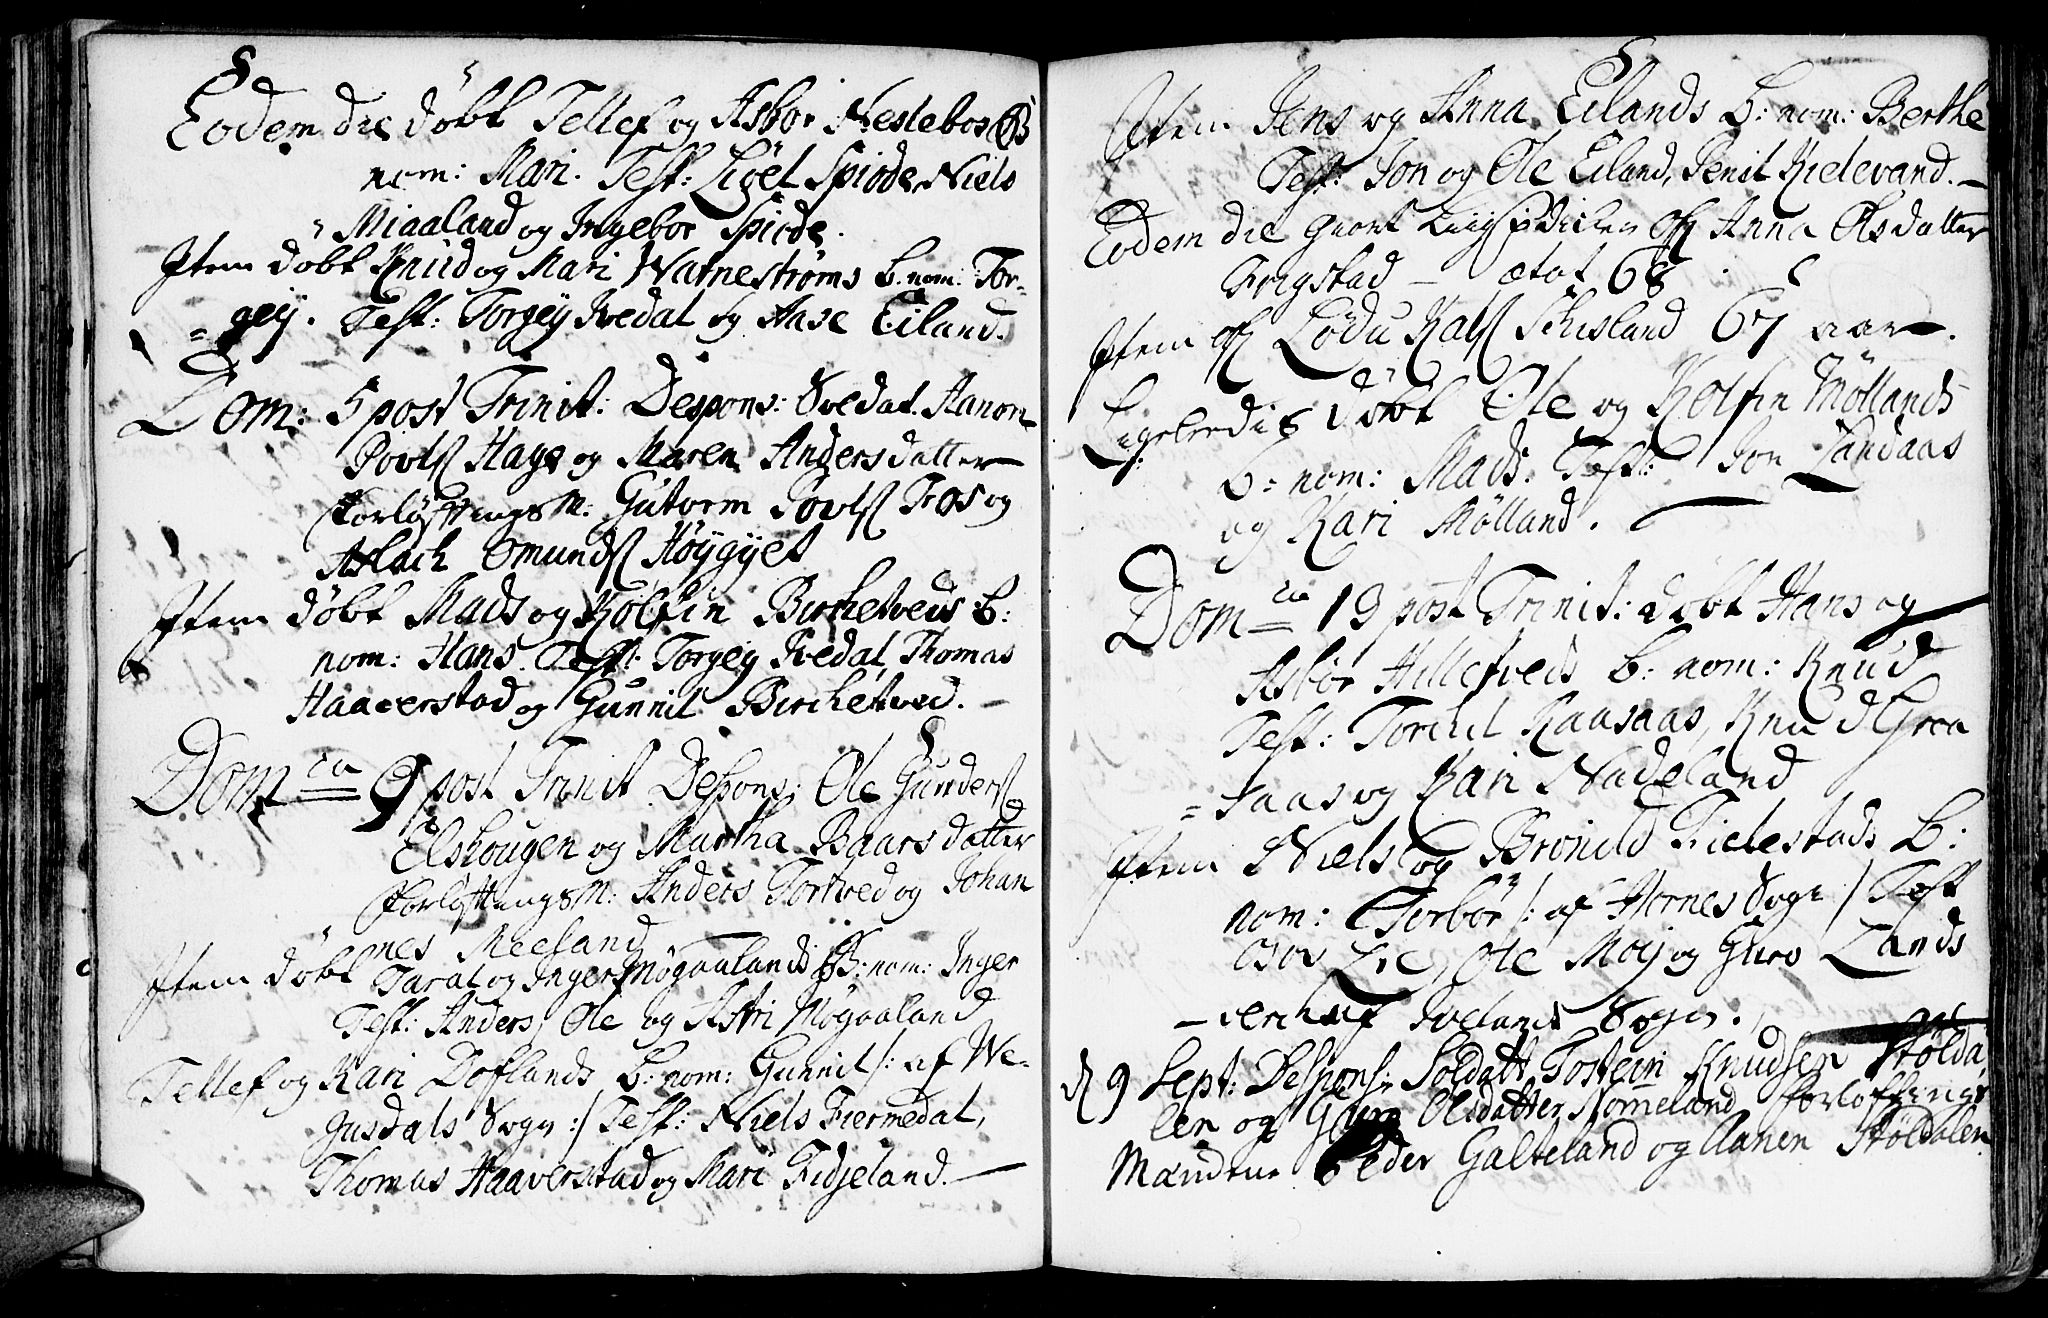 Eodem die döbt Tellef og Asbor Neslebos B
nom: Mari. Test: Ligel Spirde, Niels
Miaaland og Ingebor Spirde.
Item döbt Knud og Mari Warneströms B. nom: Tor-
= gey. Test: Torgey Ivedal og Aase Eiland.
Dom: 5 post Trinit: Despons: Soldat. Aanon
Povls Hage og Maren Andersdatter
Forlöftnings M: Gutorm Povls Træs og
Aslach Omunds Höygyet
Item döbt Mads og Kolfin Birketveds B:
nom: Hans. Test: Torgey Ivedal, Thomas
Haaverstad og Gunnil Birchetved. —
Dom ca 9 post Trinit Despons: Ole Gunders
Elshougen og Martha Baarsdatter
Forlöftnings M: Anders Tortved og Johan
nes Meeland
Item döbt Taral og Inger Mögaalands B: nom: Inger
Test: Anders, Ole og Astri Mögaaland
Tellef og Kari Doflands B: nom: Gunnil /: af We-
gusdals Sogn :/ Test: Niels Fiermedal,
Thomas Haaverstad og Mari Fidjeland. —
Item Jens og Anna Eilands B: nom: Berthe
Test: Jon og Ole Eiland, Pernil Kielevand. —
Eodem die giort Liig Prædicken ofr Anna Olsdatter
Frigstad — ætat 68.
Item ofr Lödu Kals Skisland 67 aar.
Ligeledis döbt Ole og Kolfin Möllands
B: nom: Mads. Test: Jon Landaas
og Kari Mölland.
Dom ca 13 post Trinit: döbt Hans og
Asbör Hilletveds B: nom: Knud
Test: Torchel Kaasaas, Knud Graa
= saas og Kari Nadeland
Item Niels og Bronild Fielestads B:
nom: Torbör /: af Hornes Sogn / Test
Lie, Ole Moij og Guro Lands
— verch af Ivelands Sogn.
d 9 Sept: Despons: Soldatt Tostein Knudsen Stölda
len og Guro Olsdatter Nomeland Forloftnings
Mændene Peder Galteland og Aanen Stöldalen.